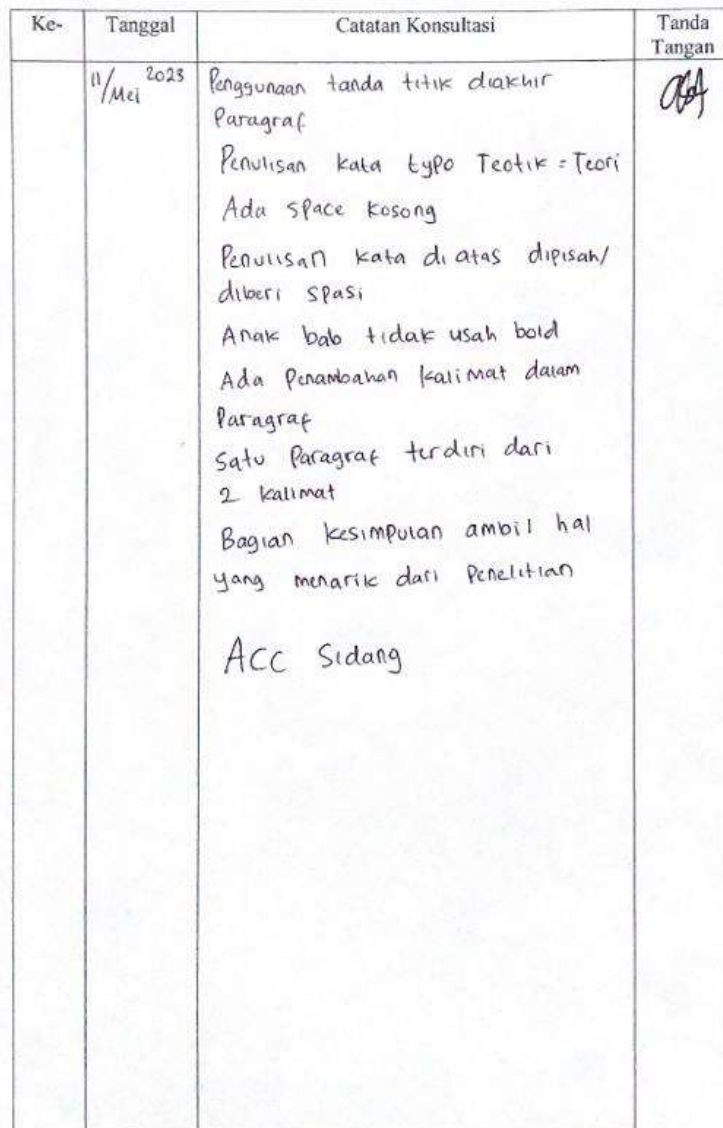 Ke- Tanggal Catatan Konsultasi Tanda
Tangan
11/Mei 2023 Penggunaan tanda titik diakhir
Paragraf
Penulisan kata typo Teotik = Teori
Ada space kosong
Penulisan kata di atas dipisah/
diberi spasi
Anak bab tidak usah bold
Ada Penambahan kalimat dalam
Paragraf
Satu Paragraf terdiri dari
2 kalimat
Bagian kesimpulan ambil hal
yang menarik dari Penelitian
ACC Sidang